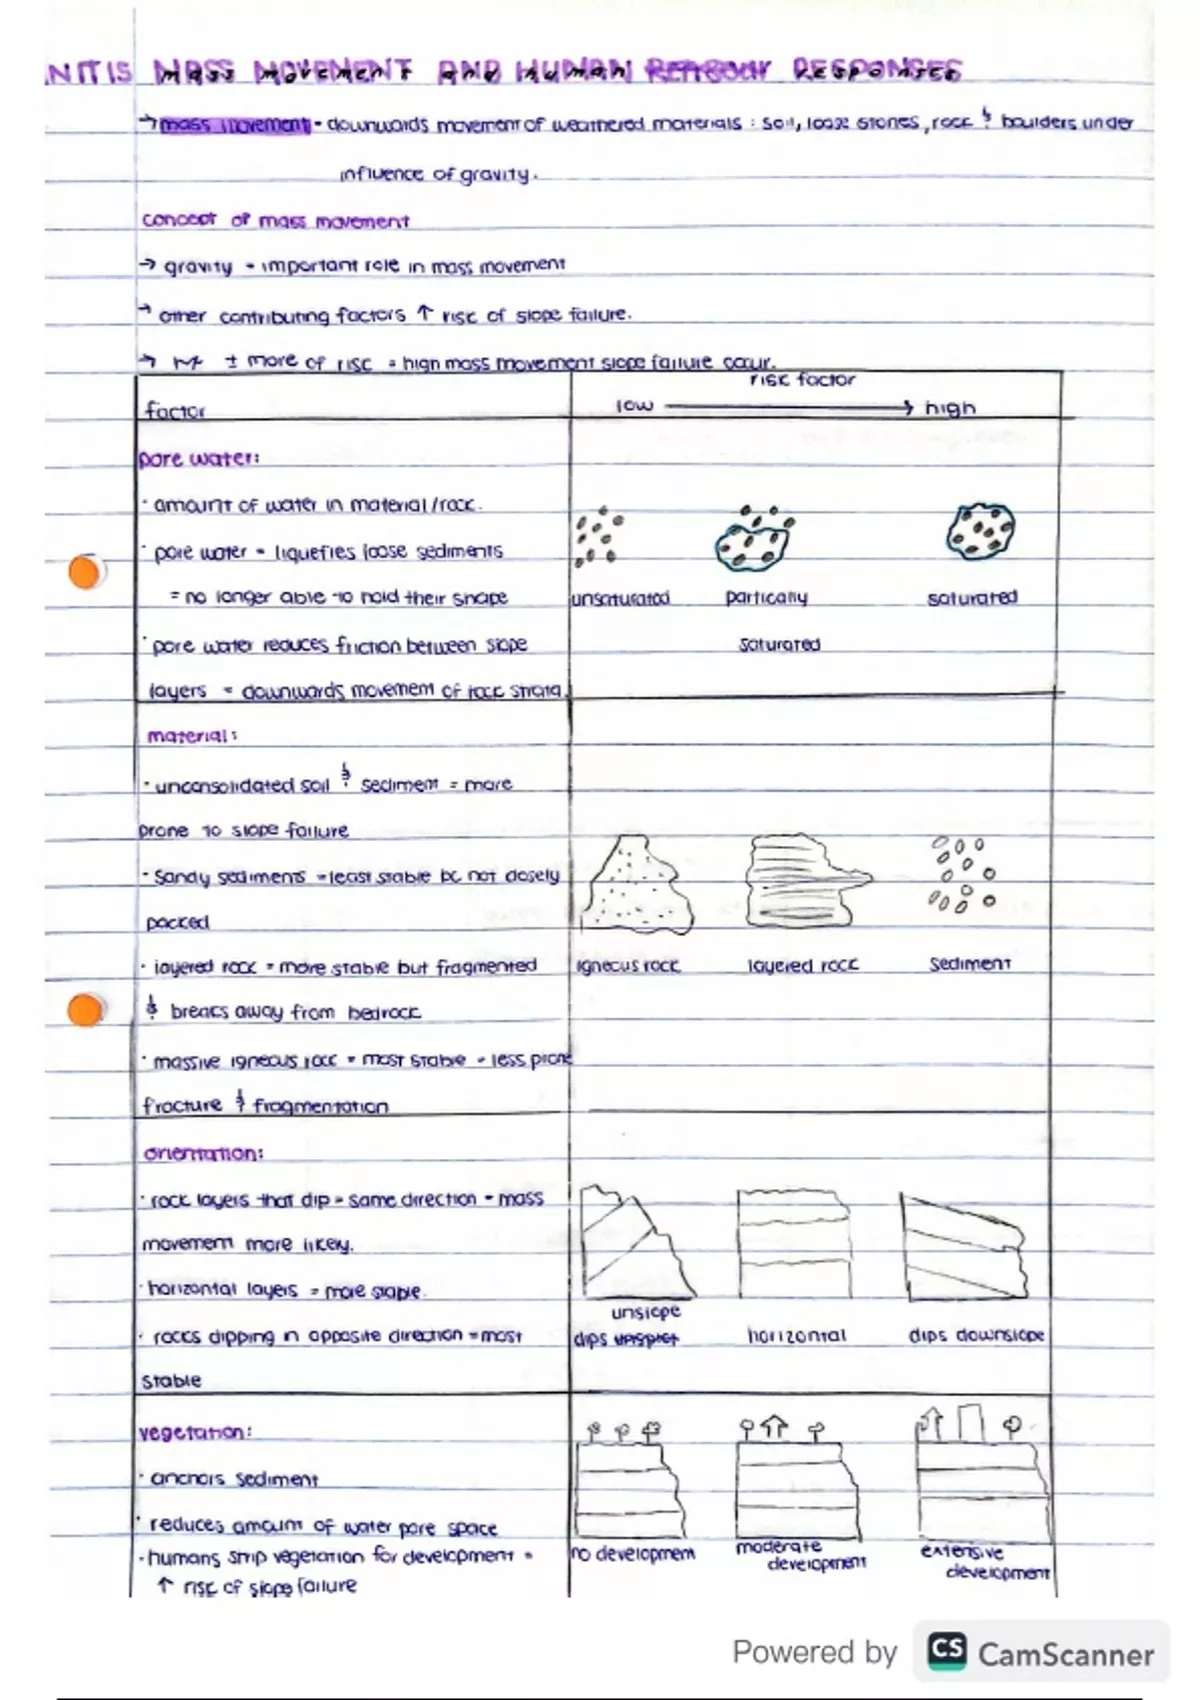 NIT 15 MASS MOVEMENT AND HUMAN RESPONSES
→ mass movement - downwards movement of weathered materials : soil, loose stones, rock & boulders under
influence of gravity.
concept of mass movement
→ gravity - important role in mass movement
→ other contributing factors ↑ risk of slope failure.
→ ± more of risk = high mass movement slope failure occur.
factor
risk factor
low → high
pore water:
· amount of water in material/rock.
· pore water = liquefies loose sediments
= no longer able to hold their shape
· pore water reduces friction between slope
layers = downwards movement of rock strata.
unsaturated partically saturated
saturated
material:
· unconsolidated soil & sediment = more
prone to slope failure
· sandy sediments = least stable bc not closely
packed
· layered rock = more stable but fragmented
& breaks away from bedrock
· massive igneous rock = most stable - less prone
fracture & fragmentation
igneous rock layered rock sediment
orientation:
· rock layers that dip = same direction = mass
movement more likely.
· horizontal layers = more stable.
· rocks dipping in opposite direction = most
stable
unslope
dips horizontal dips downslope
vegetation:
· anchors sediment
· reduces amount of water pore space
· humans strip vegetation for development =
↑ risk of slope failure
no development
moderate
development
extensive
development
Powered by CS CamScanner